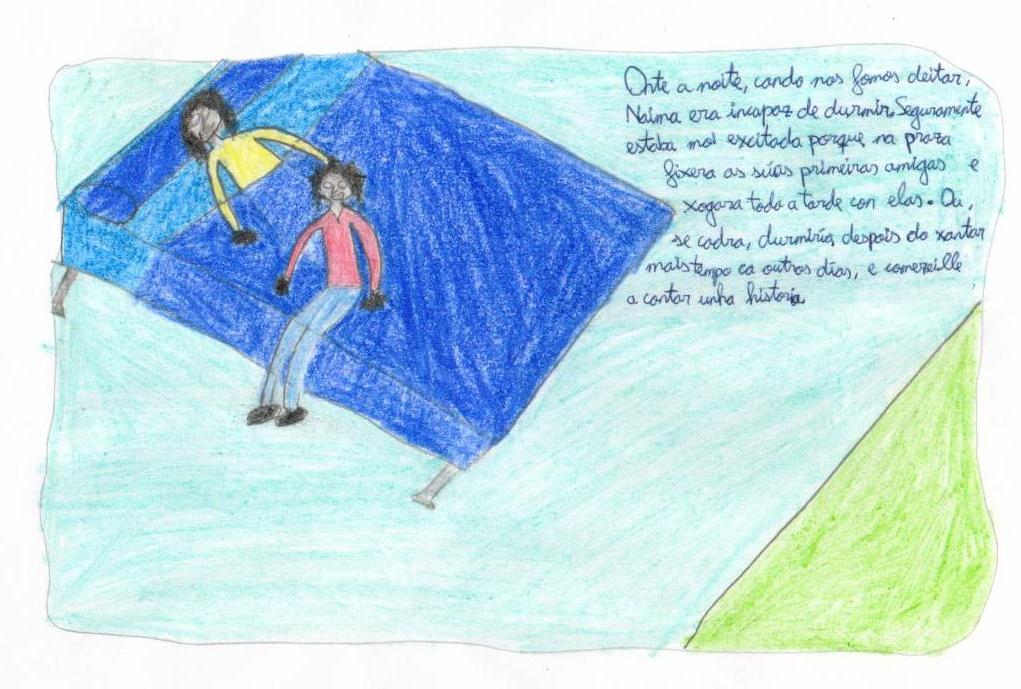 Onte a noite, cando nos fomos deitar,
Naima era incapaz de durmir. Seguramente
estaba moi excitada porque na praza
fixera as súas primeiras amigas e
xogara toda a tarde con elas. Ou,
se cadra, durmiría despois do xantar
mais tempo ca outros días, e comezeille
a contar unha historia.